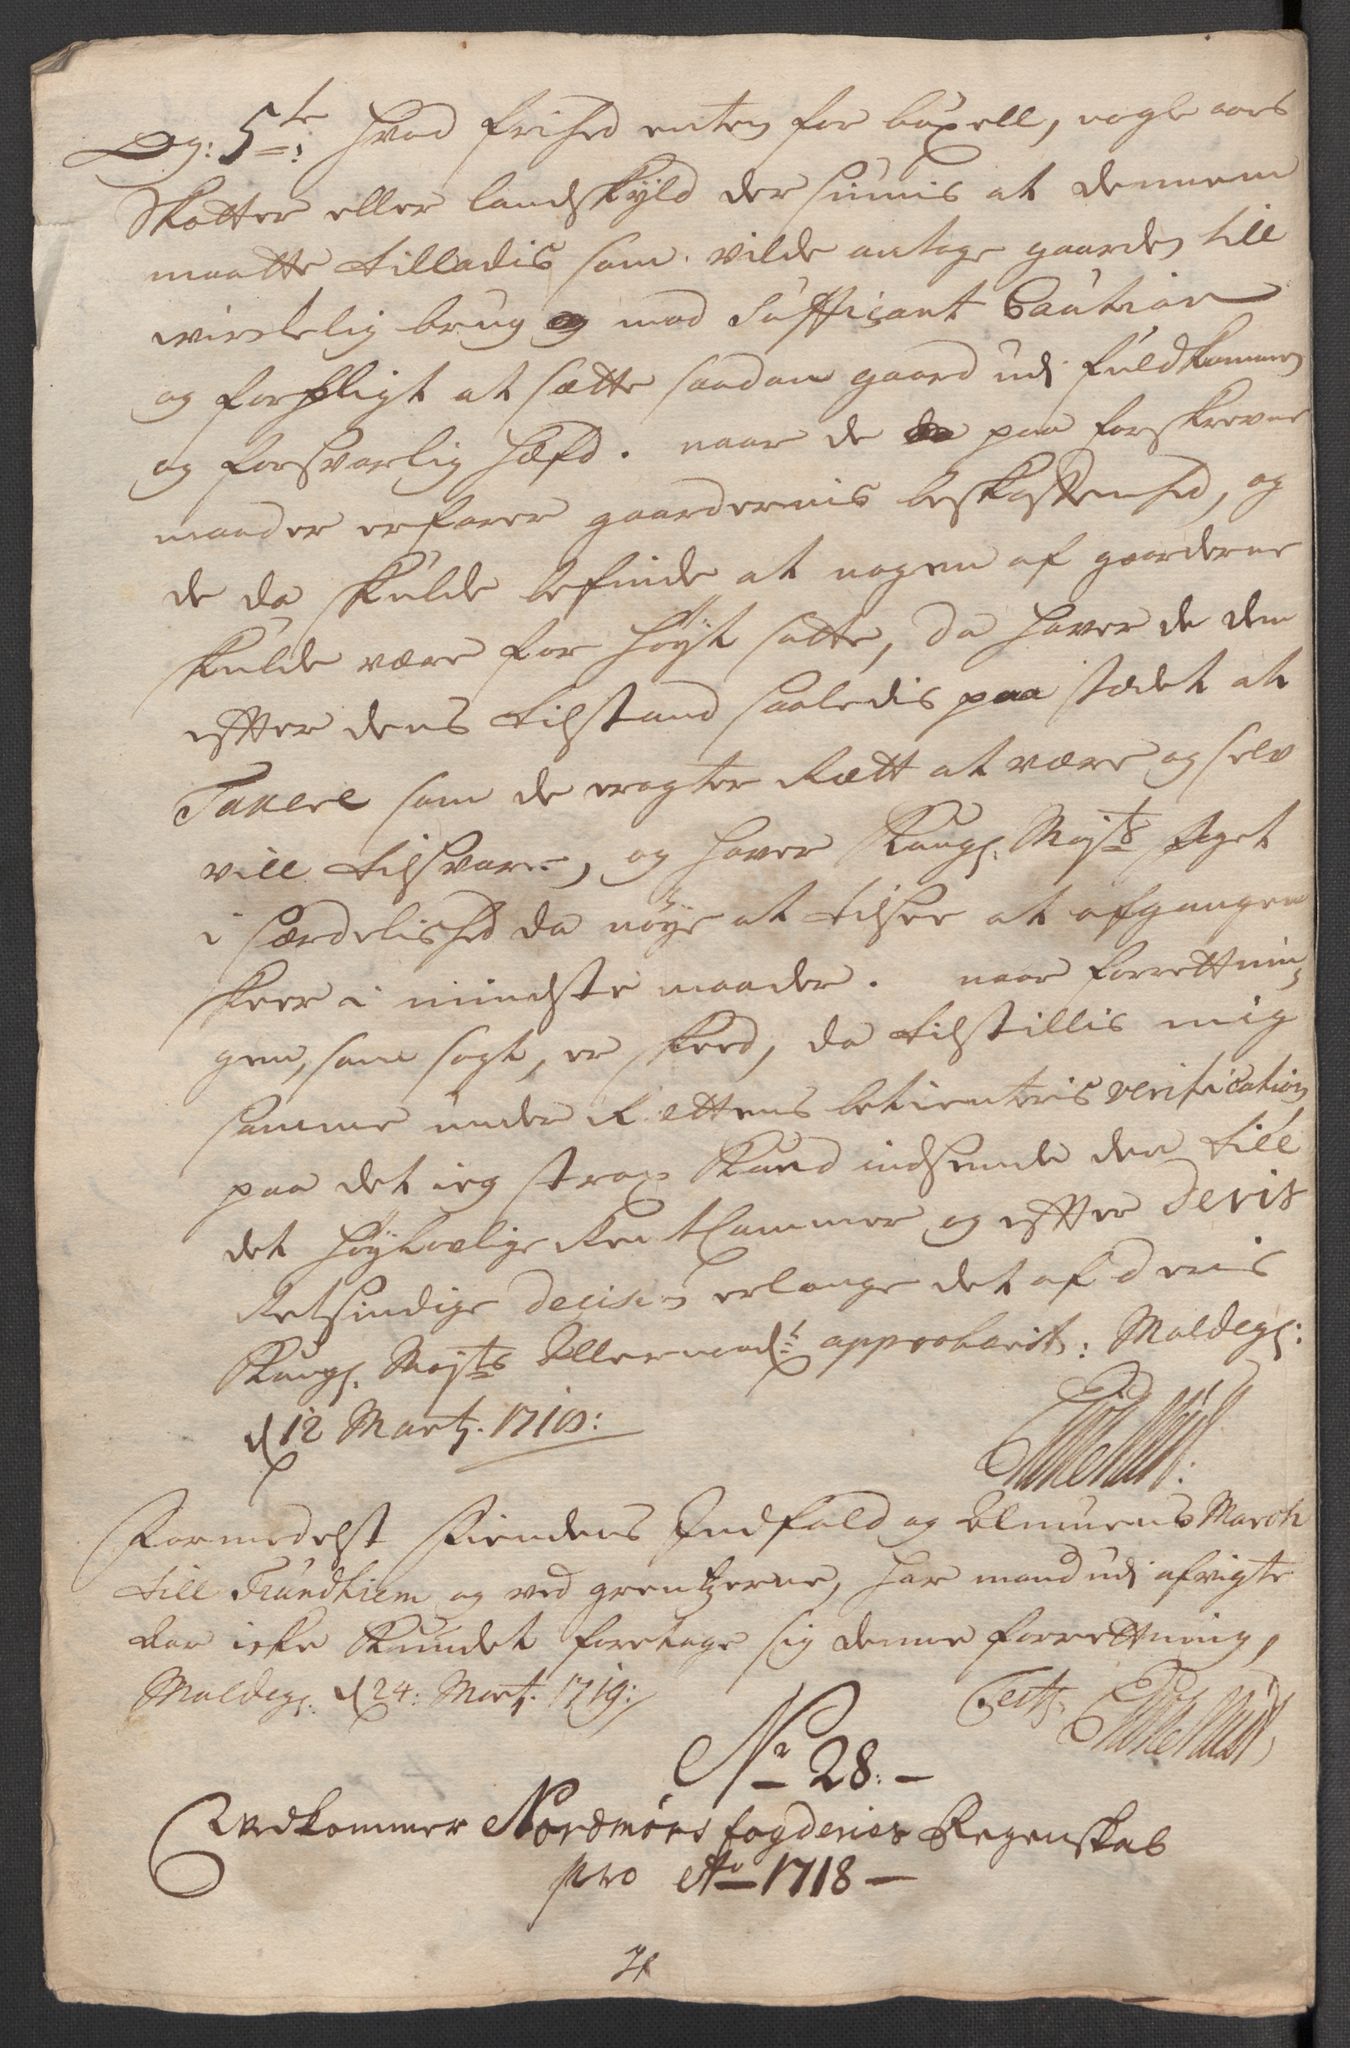 Og: 5te: hvad frihed enten for bøxell, nogle aars
Skatter eller landskyld der siunis at dennem
maatte tilladis som vilde antage gaarden till
wirkelig brug og mod Sufficant Caution
og forpligt at sætte saadan gaard udj fuldkommen
og forsvarlig hæfd. naar de paa forskrevne
maader erfarer gaardernis beskaffenhed, og
de da skulde befinde at nogen af gaarderne
skulde være for høyt satte, da haver de dem
effter dens tilstand saaledis paa stædet at
Taxere som de eragter Rætt at være og selv
vill tilsvare, og haver Kongl. Mayts foget
i særdelished da nøye at tilsee at afgangen
skeer i mindste maader. naar forrettnin,
gen, som sagt, er skeed, da tilstillis mig
samme under Rettens betienteris verification
paa det ieg strax kand indsende den till
det høylovlige Rent Cammer og effter Deris
Retsindige Decision erlange det af deris
Kongl. Mayts Allernaadt approberit: Moldegl:
d 12 Martj. 1718:
Formedelst Fiendens Indfald og Armeens March
till Trundhiem og ved grentzerne, har mand udj afvigte
aar icke kundet foretage sig denne forrettning,
Moldegl. d 24: Martj. 1719:
No 28:
Vedkommer Nordmørs fogderies Regenskab
pro Ao 1718